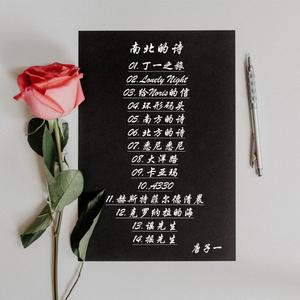 南北的诗
01.丁一之旅
02.Lonely Night
03.给Noris的信
04.环形码头
05.南方的诗
06.北方的诗
07.悉尼悉尼
08.大洋路
09.卡亚玛
10.A330
11.赫斯特菲尔德清晨
12.克罗纳拉的海
13.误先生
14.振先生
唐子一